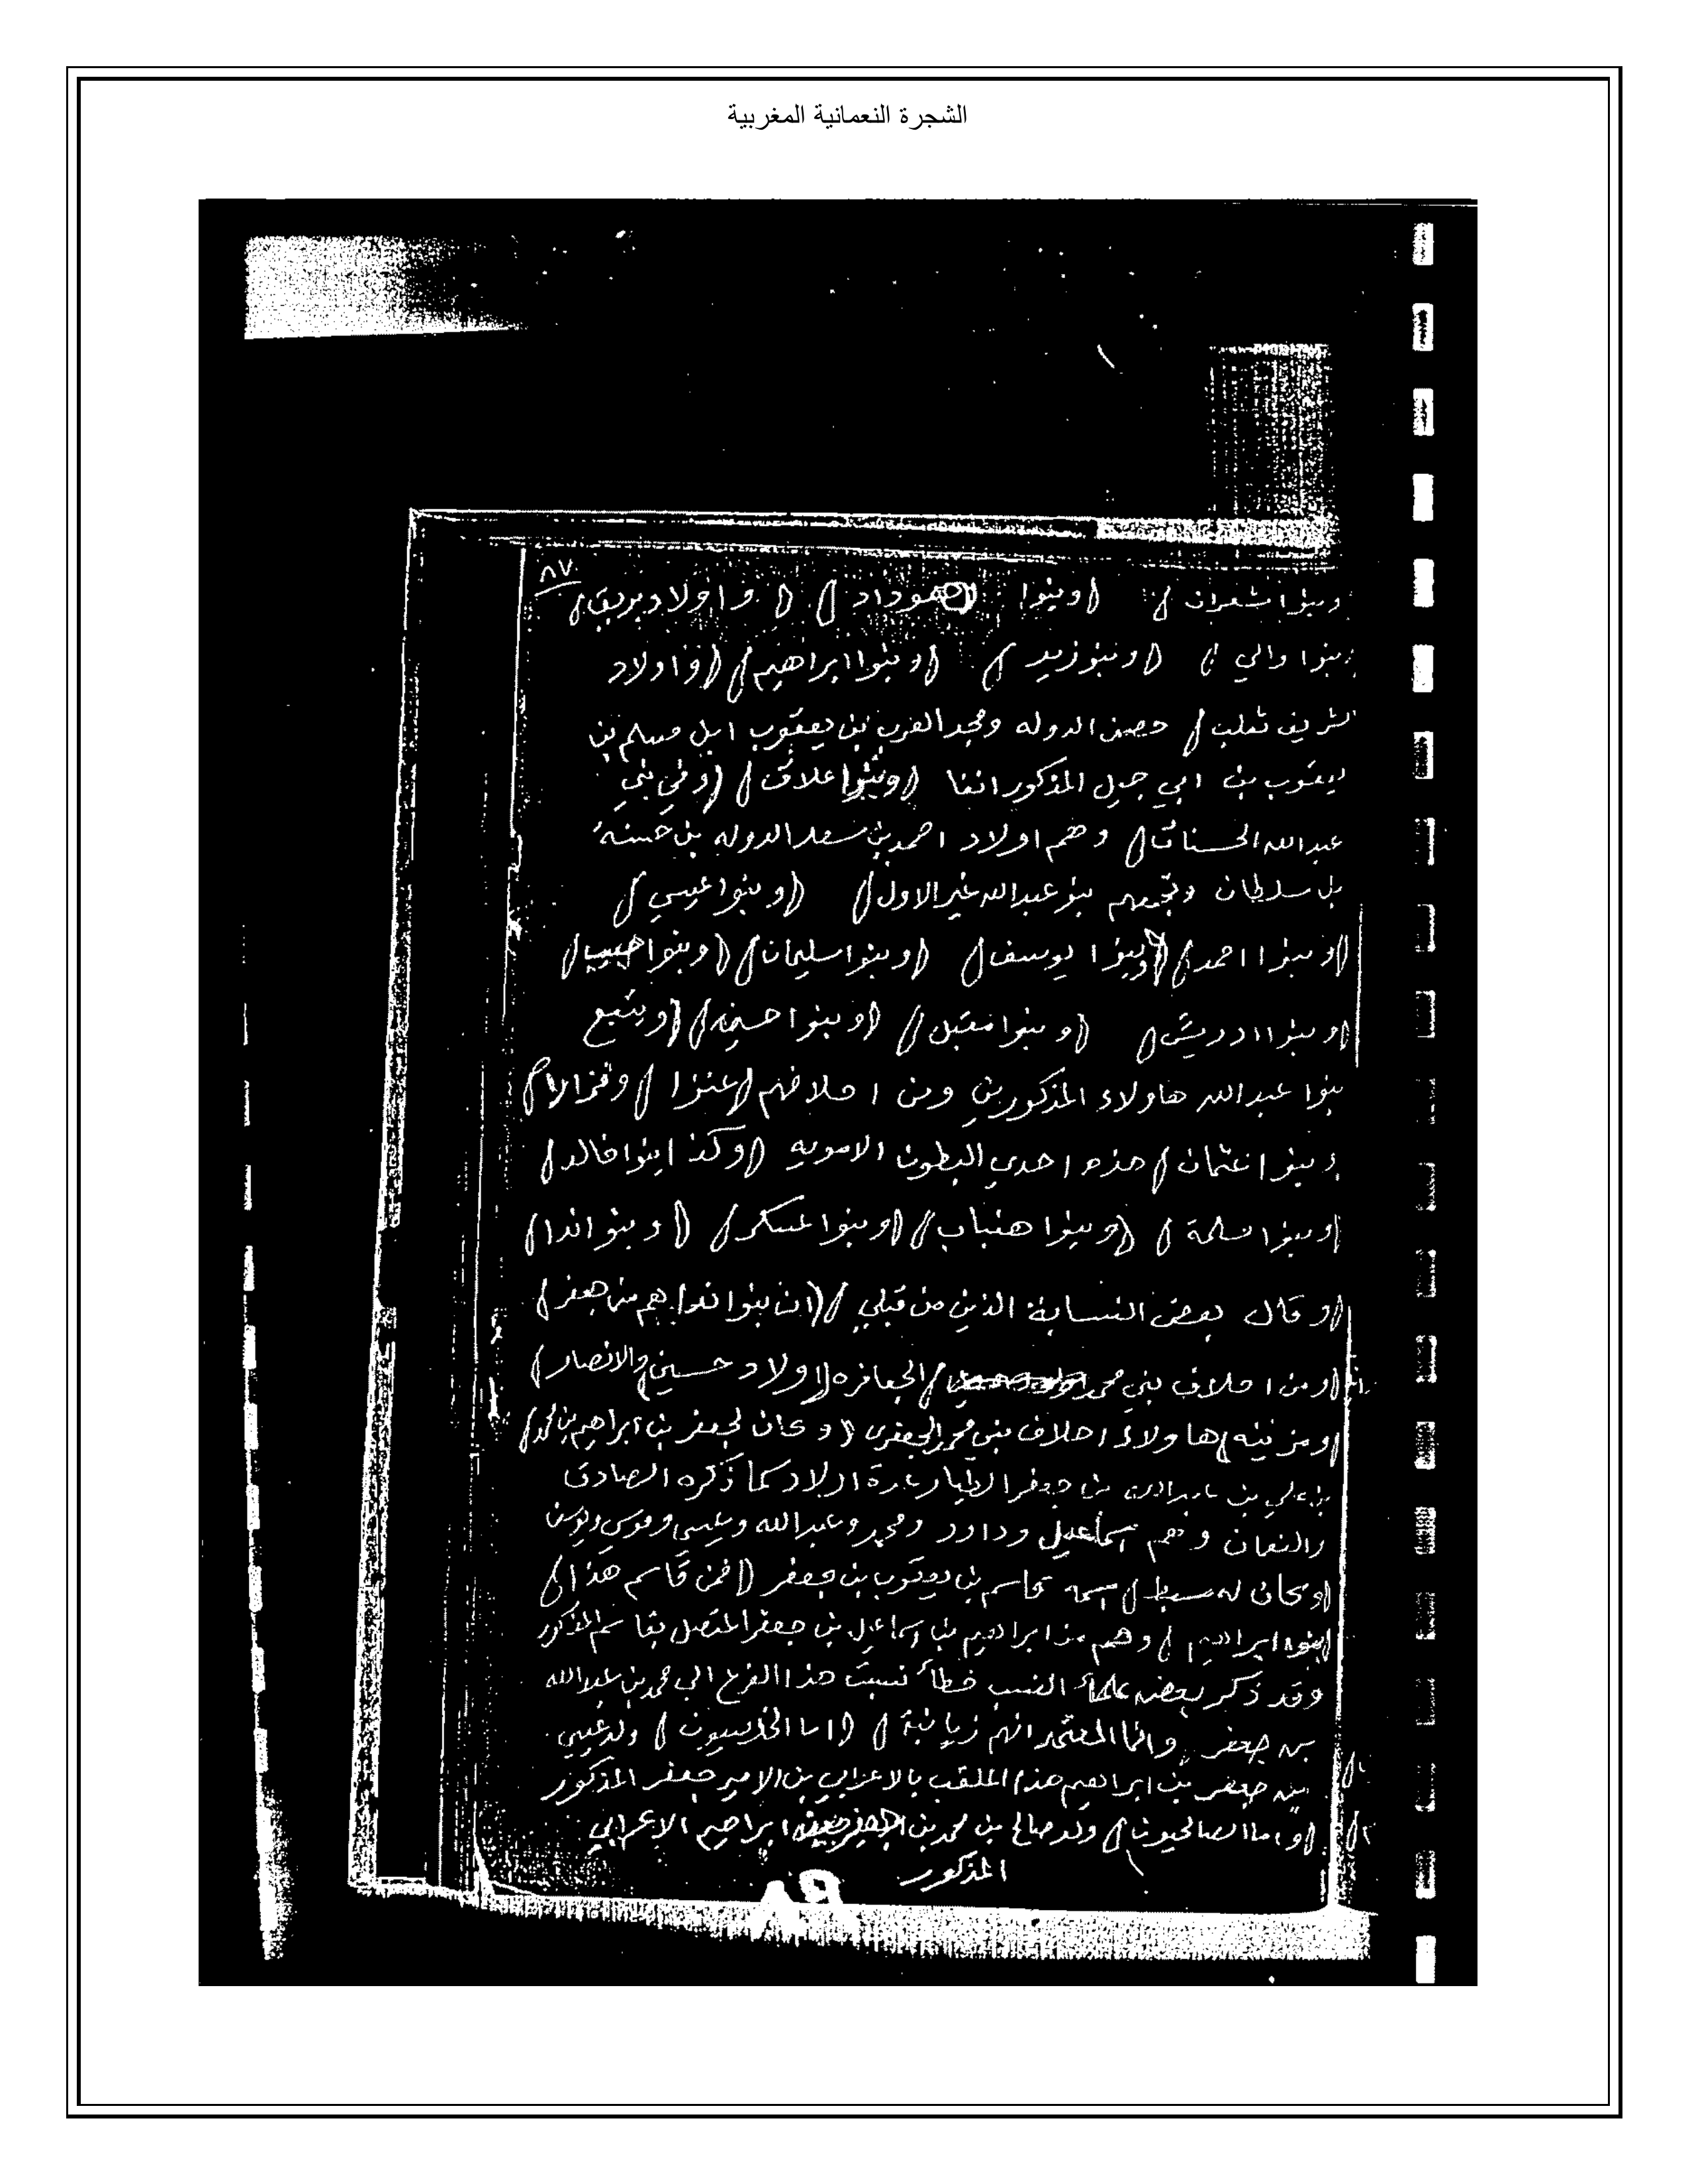 الشجرة النعمانية المغربية
٨٧
وبنوا شعران) (وبنوا داد) (واولاد بريق)
وبنوا والي) (وبنو زيد) (وبنوا ابراهيم) (واولاد
الشريف ثعلب) حصن الدوله ومجد العرب بن يعقوب ابن مسلم بن
يعقوب بن ابي جميل المذكور انفا (وبنوا علاق) (وفي بني
عبدالله الحسنات) وهم اولاد احمد بن سعد الدوله بن حسنه
بن سلطان وتجمعهم بنو عبدالله غير الاول) (وبنوا عيسي)
(وبنوا احمد) (وبنوا يوسف) (وبنوا سليمان) (وبنوا حبيب)
(وبنوا ادريس) (وبنوا مقبل) (وبنوا حسين) (ويتبع
بنوا عبدالله هاولاء المذكورين ومن احلافهم (عنزا)
وبنوا عثمان) هذه احدي البطون الامويه (وكذا بنوا خالد)
(وبنوا سلمة) (وبنوا هنباب) (وبنوا عسكر) (وبنو اندا)
(وقال بعض النسابة الذين من قبلي) (ان بنوا ندا هم من جعفر)
(ومن احلاف بني محمد الجعافره (اولاد حسين) والانصار)
(ومزينه) هاولاء احلاف بني محمد الجعفري (وكان لجعفر بن ابراهيم بن محمد)
بن علي بن عبدالله بن جعفر الطيار عدة اولاد كما ذكره الصادق
والنعمان وهم اسماعيل وداود ومحمد وعبدالله وعيسي وموسي ويوسف
(وكان له سبط) اسمه قاسم بن يعقوب بن جعفر (فمن قاسم هذا)
(بنوه ابراهيم) وهم من ابراهيم بن اسماعيل بن جعفر المتصل بقاسم المذكور
وقد ذكر بعض علماء النسب خطأ نسبت هذا الفرع الي محمد بن عبدالله
بن جعفر وانما المعتمد انهم زيانبة) (اما الخليسيون) ولد عيسي
بن جعفر بن ابراهيم هذا الملقب بالاعرابي بن الامير جعفر المذكور
(واما الصالحيون) ولد صالح بن محمد بن ابراهيم الاعرابي
المذكور